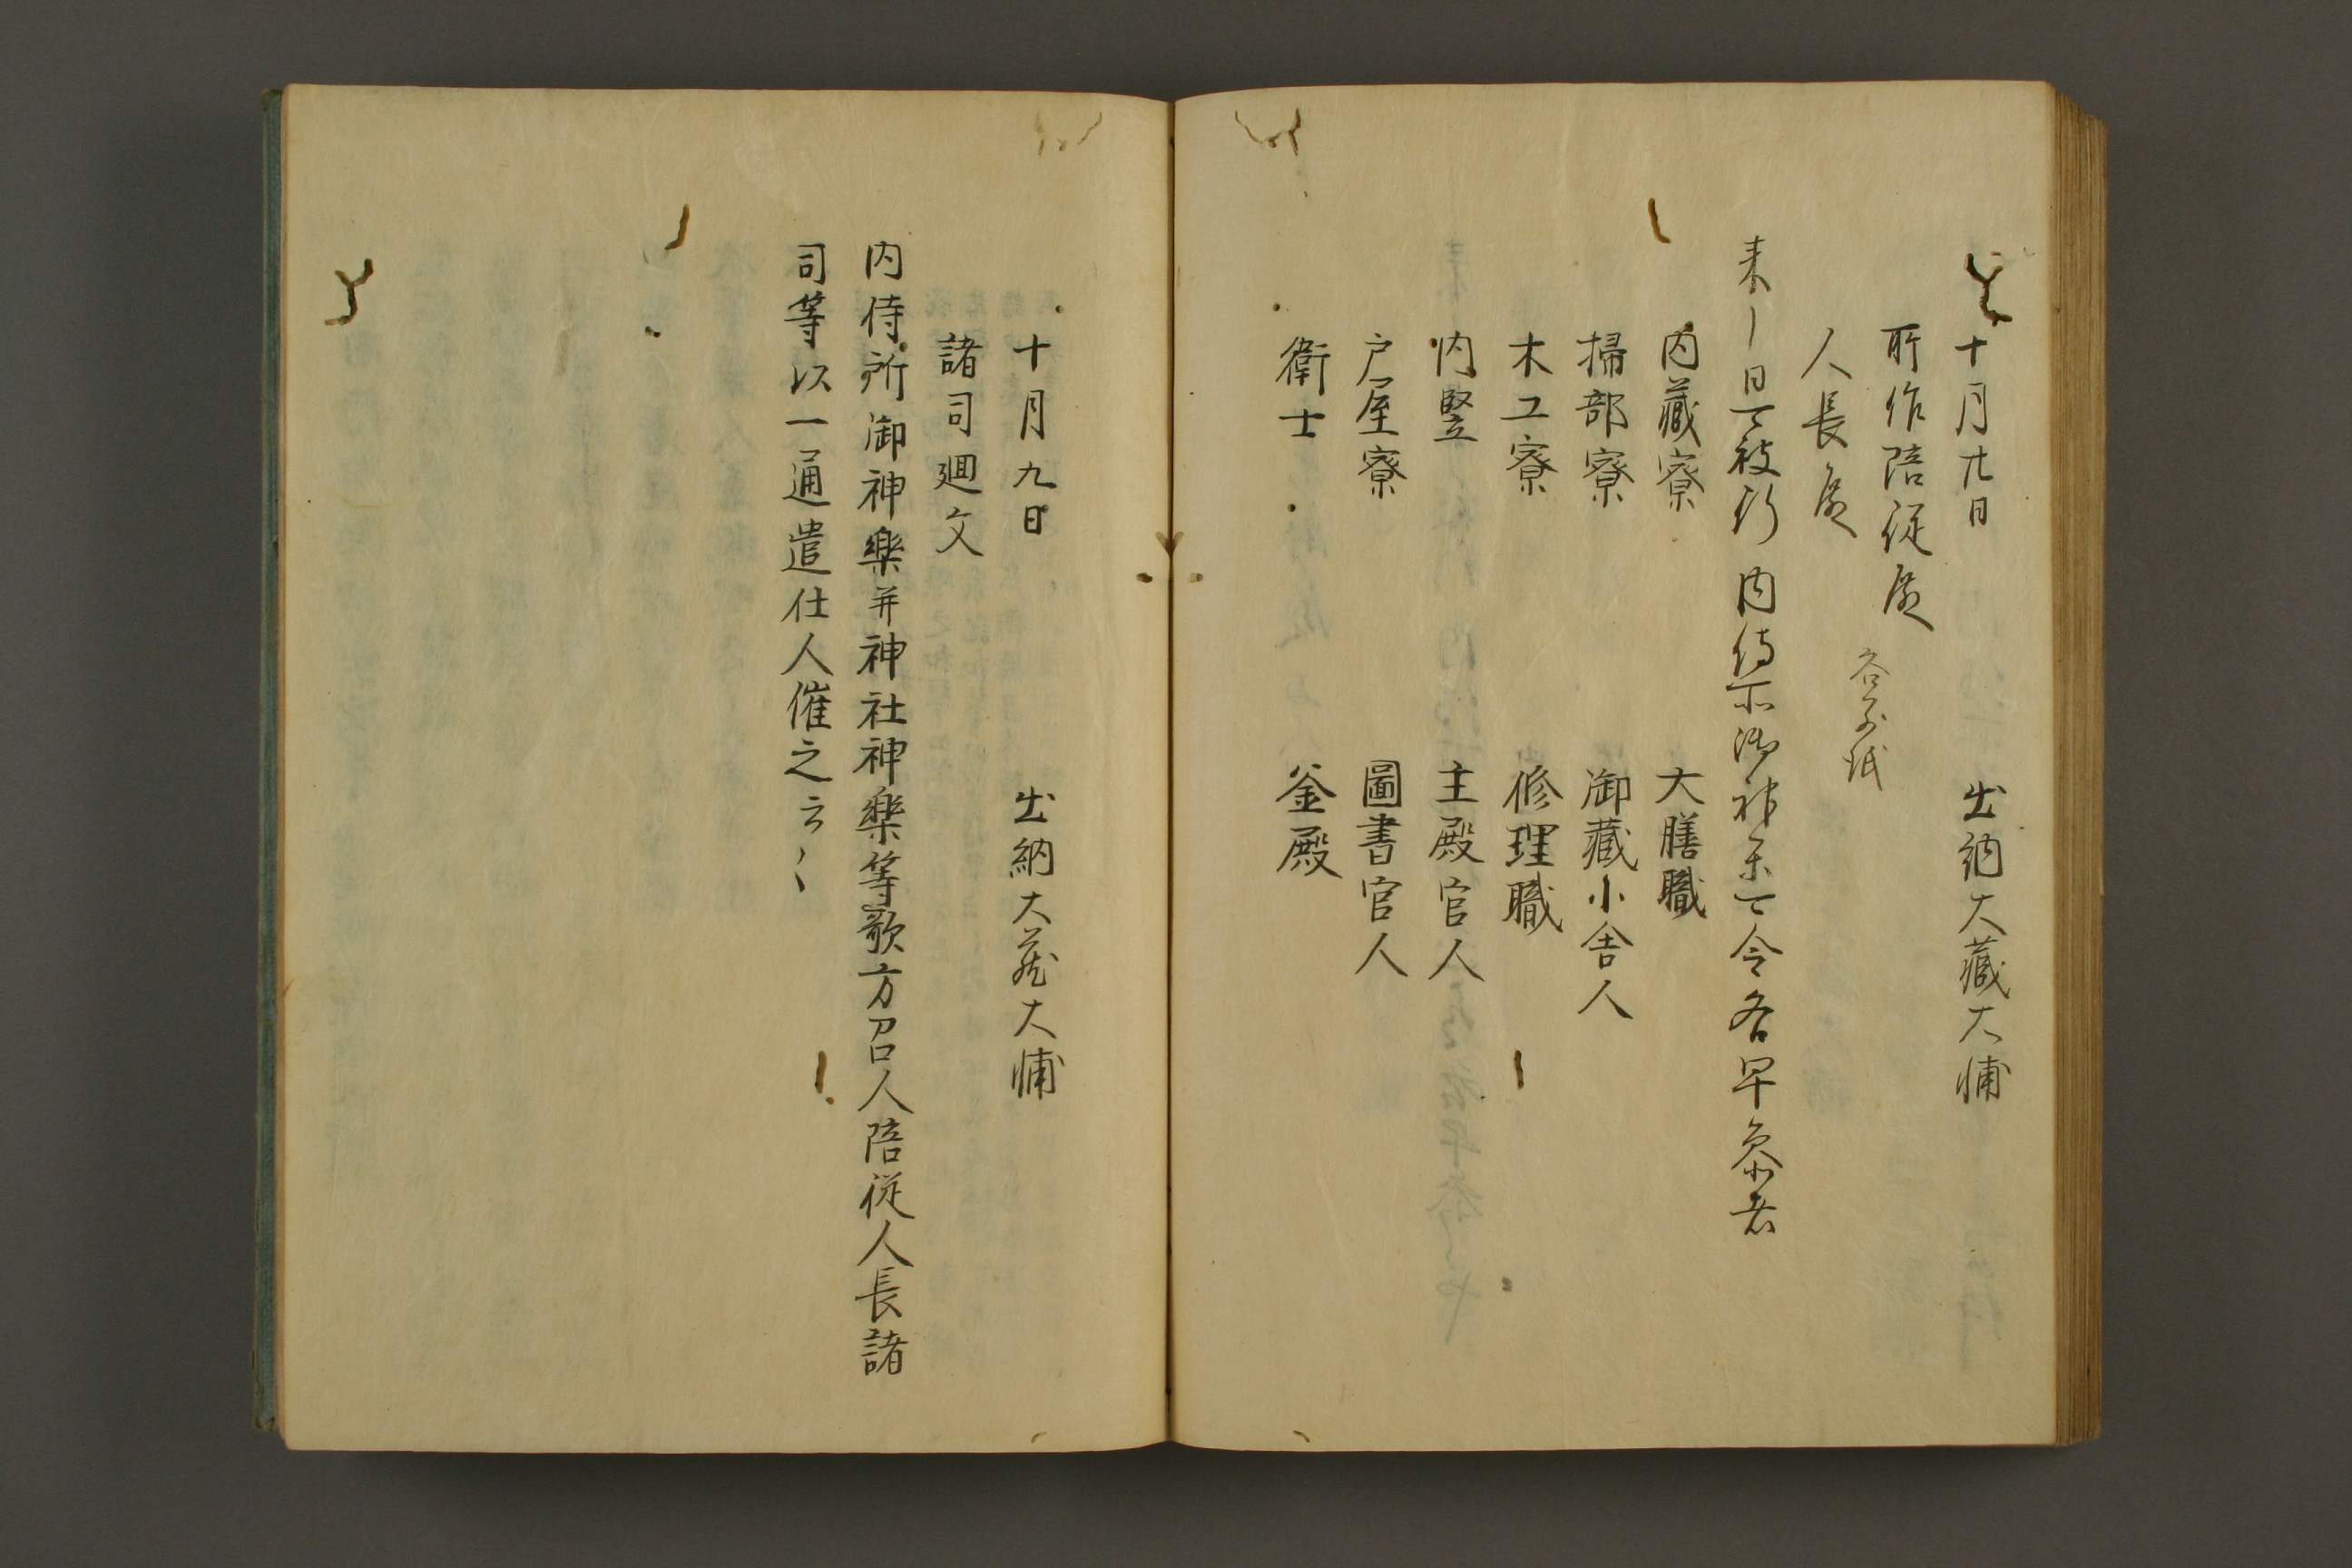 十月廿九日　出納大藏大輔
所作陪従殿
人長殿
各別紙
来ー日可被行内侍所御神楽可令各早参者
内藏寮　大膳職
掃部寮　御藏小舎人
木工寮　修理職
内竪　主殿官人
戸屋寮　圖書官人
衛士　釜殿
十月九日　出納大蔵大輔
諸司廻文
内侍所御神樂并神社神樂等歌方召人陪従人長諸
司等以一通遣仕人催之云〻